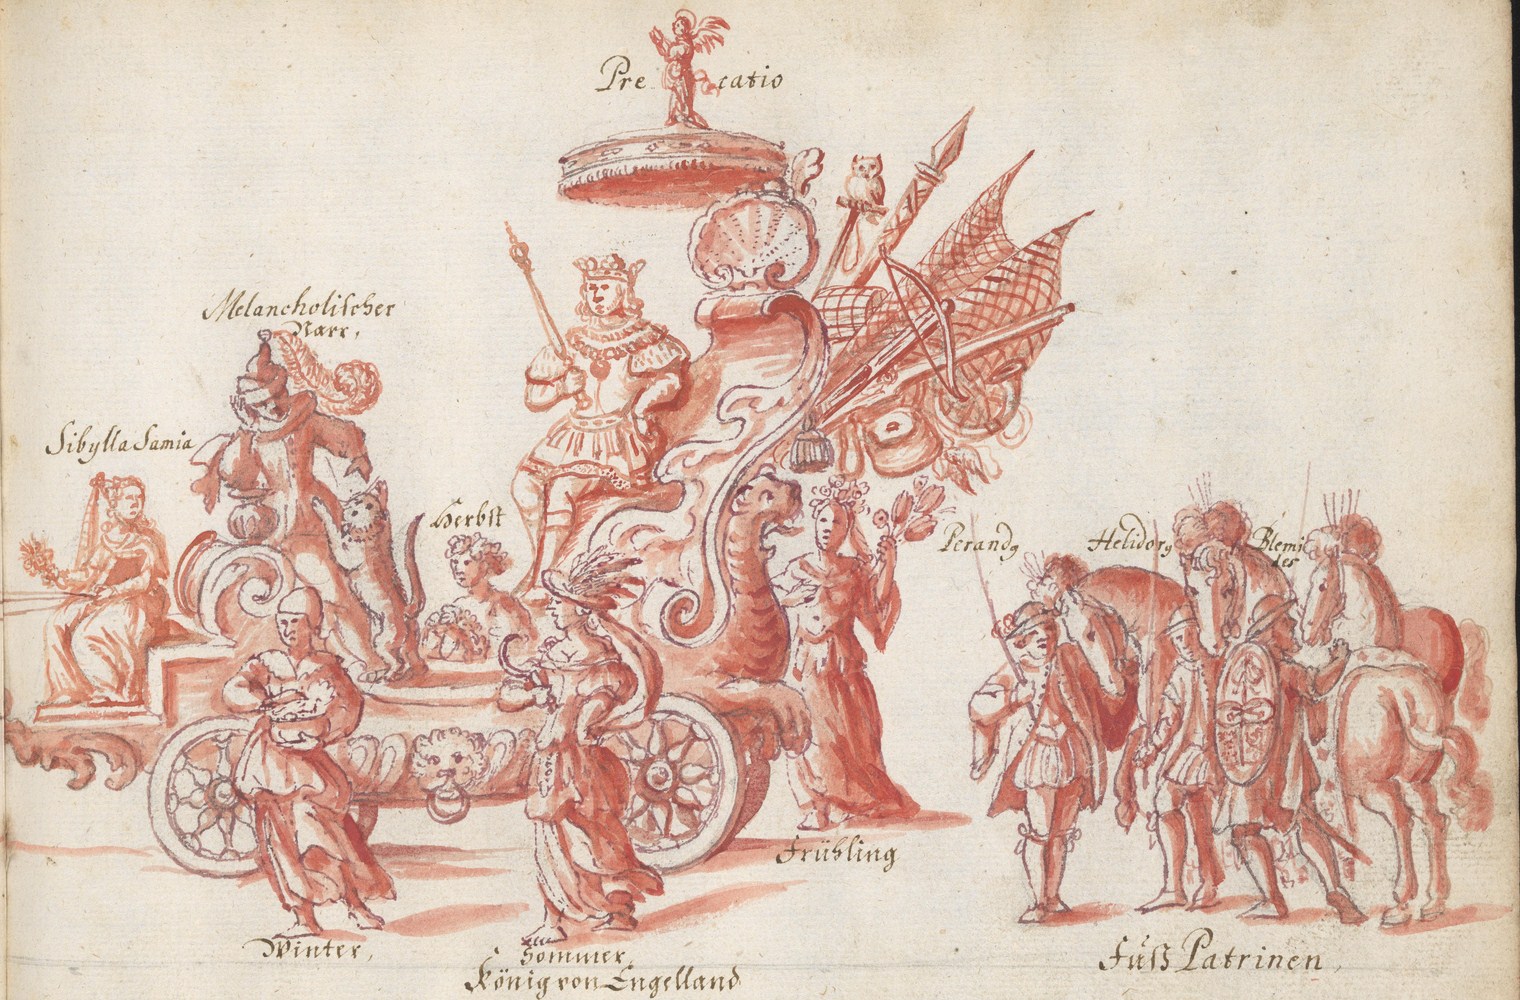 Precatio
Melancholischer
Narr,
Sibylla Samia
Herbst
Pirandq
Helidorq
Blemi
des
Frühling
Winter,
Sommer,
König von Engelland
Fůß Patrinen,